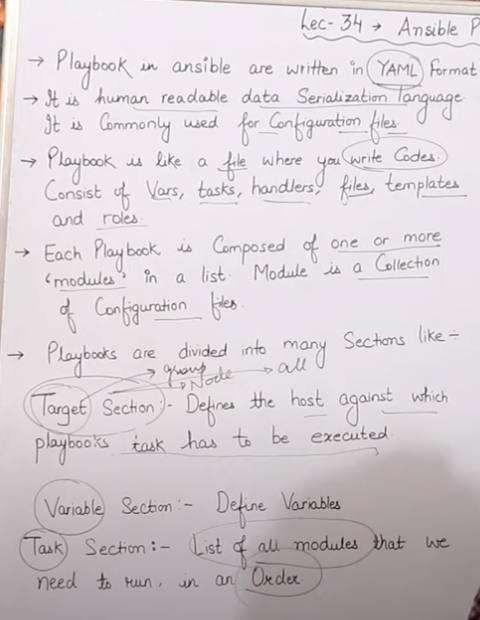 Lec-34 → Ansible P
→ Playbook in ansible are written in YAML Format
→ It is human readable data Serialization language
It is Commonly used for Configuration files.
→ Playbook is like a file where you write Codes.
Consist of Vars, tasks, handlers, files, templates
and roles.
→ Each Playbook is Composed of one or more
'modules' in a list. Module is a Collection
of Configuration files.
→ Playbooks are divided into many Sections like :-
→ group
→ Node → all
Target Section :- Defines the host against which
playbooks task has to be executed.
Variable Section :- Define Variables
Task Section :- List of all modules that we
need to run, in an Order